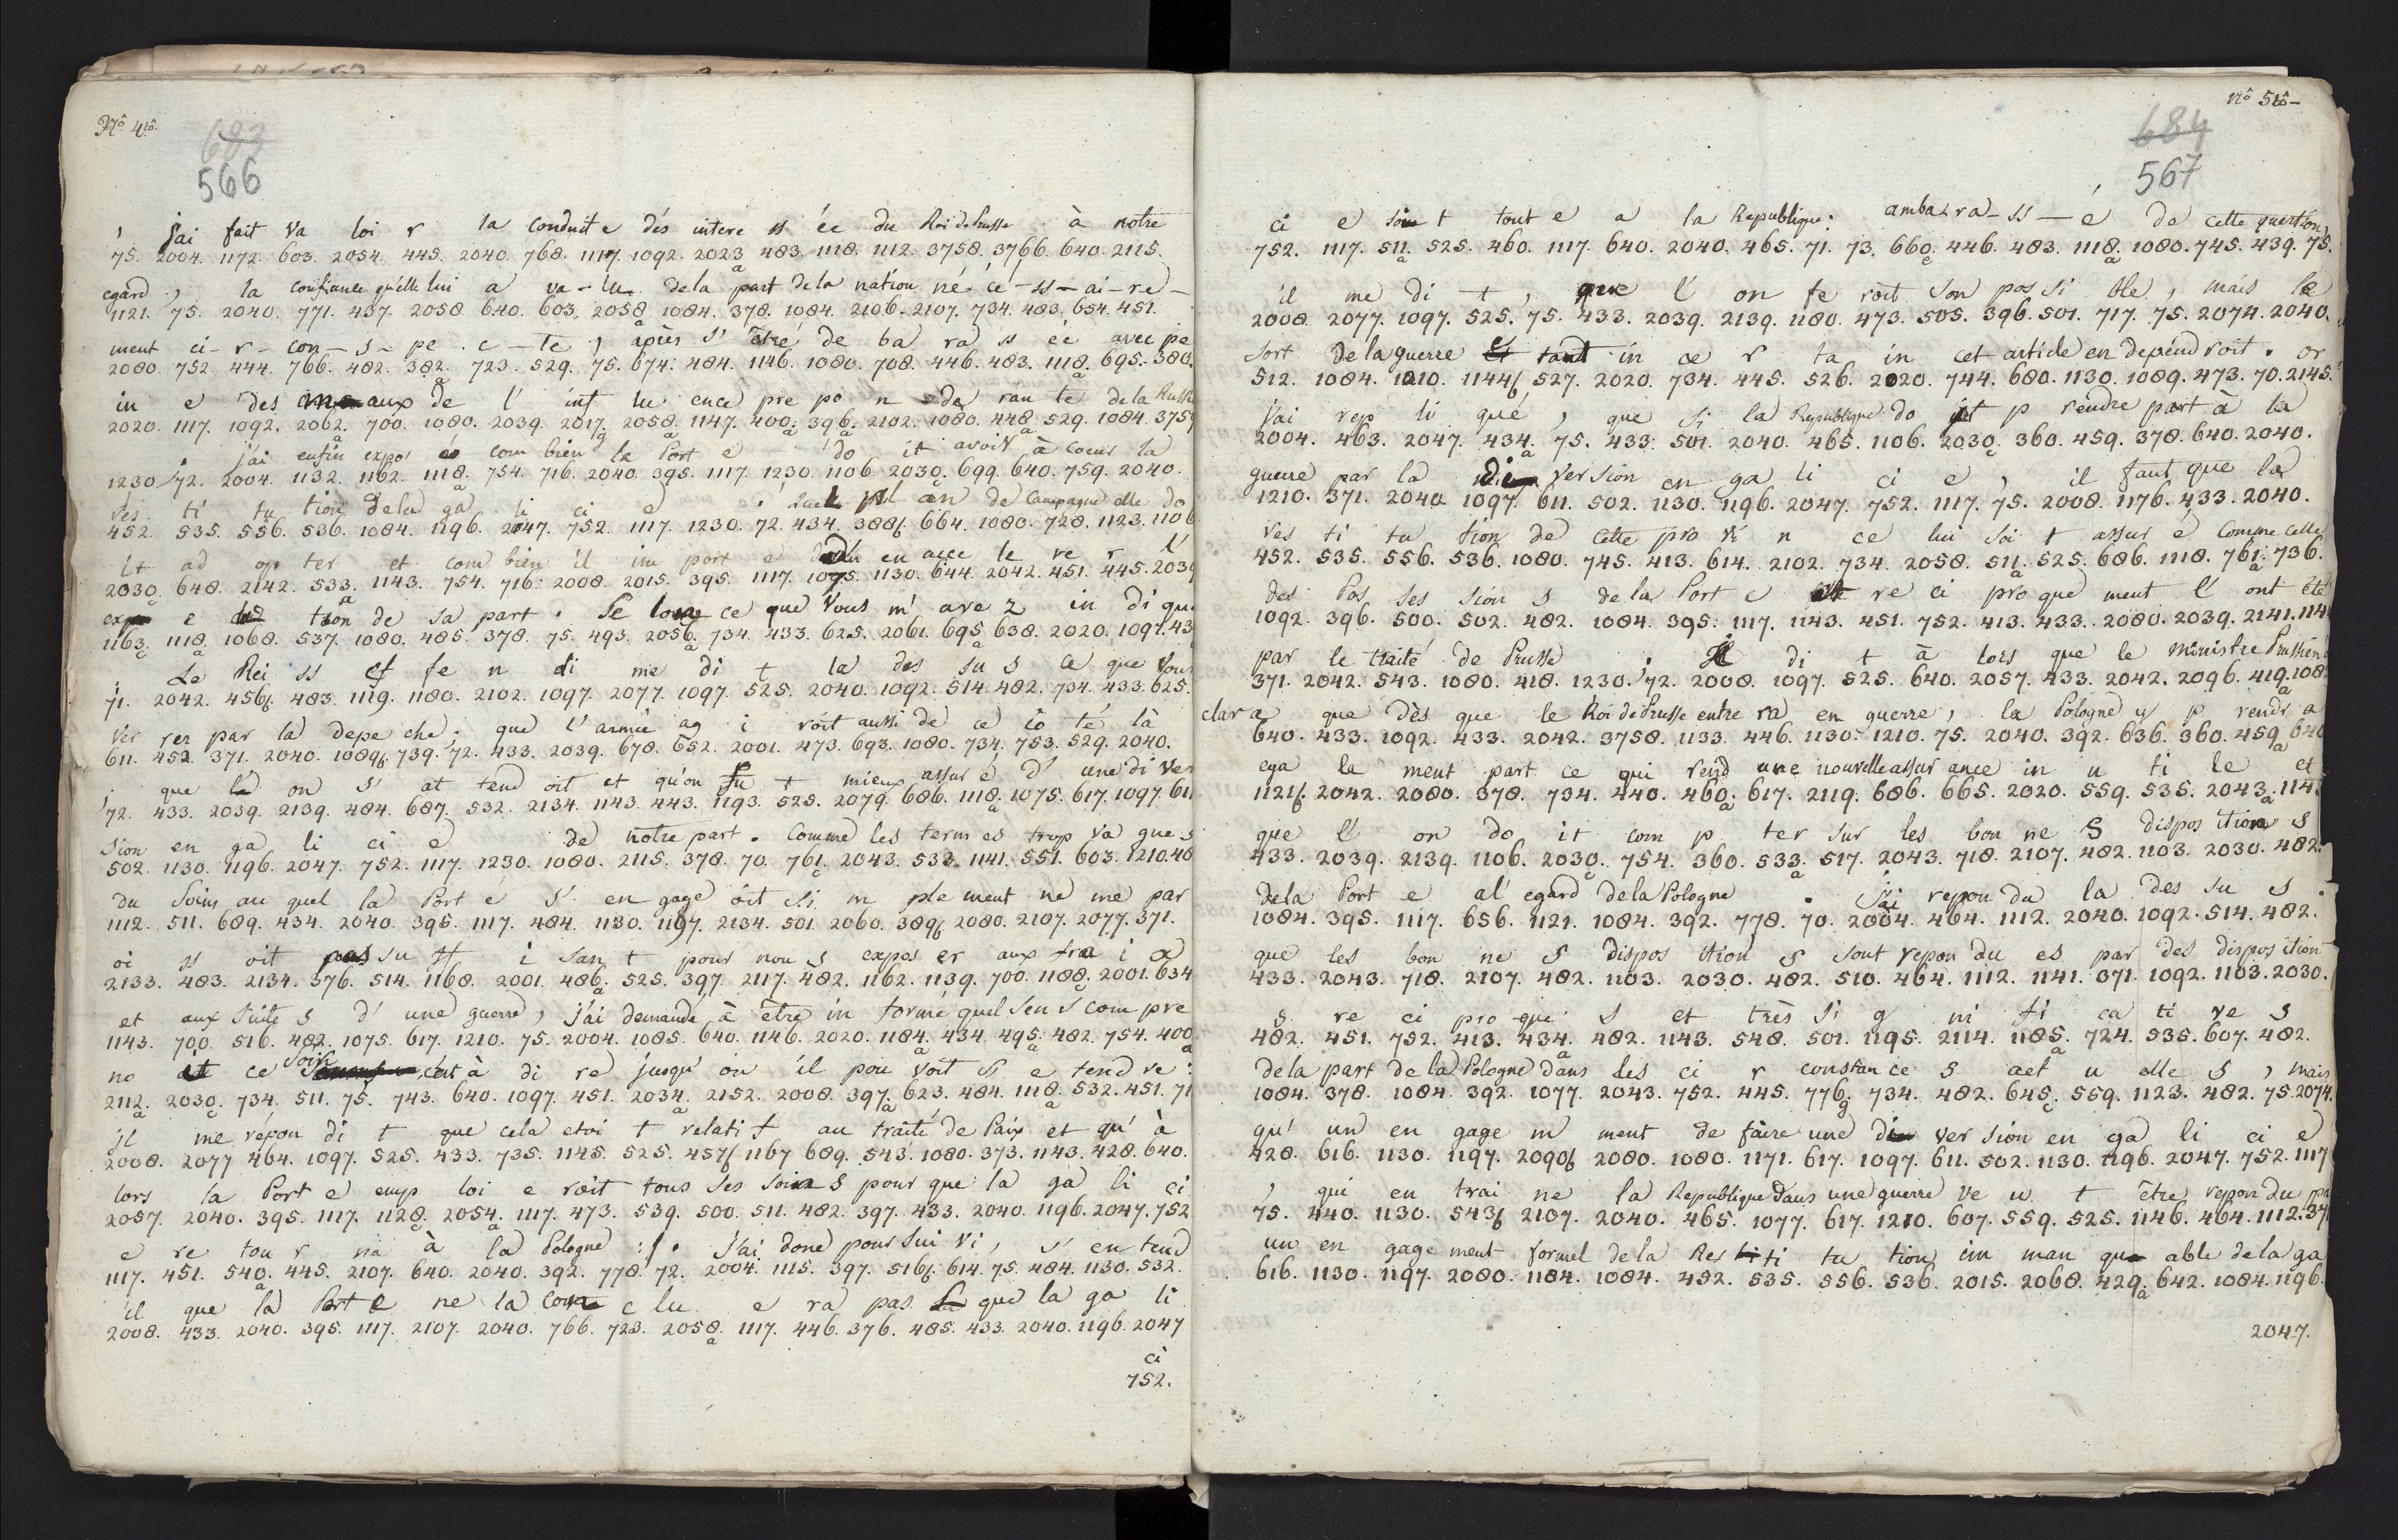 No 4to.
683
566
, j'ai fait va loi r la conduite dés intere ss ée du Roi de Prusse à notre
75. 2004. 1172. 603. 2054. 445. 2040. 768. 1117. 1092. 2023. 483. 1118. 1112. 3758. 3766. 640. 2115.
egard, la confiance qu'elle lui a va-lue de la part de la nation né-cé-ss-ai-re-
1121. 75. 2040. 771. 437. 2058. 640. 603. 2058. 1084. 378. 1084. 2106. 2107. 734. 483. 654. 451.
ment ci-r-con-s-pe-c-te, après s' être de ba ra ss ée avec pe
2080. 752. 444. 766. 482. 382. 723. 529. 75. 674. 484. 1146. 1080. 708. 446. 483. 1118. 695. 380.
in e des maux de l' inf lu ence pre po n de ran te de la Russie
2020. 1117. 1092. 2062. 700. 1080. 2039. 2017. 2058. 1147. 400. 396. 2102. 1080. 448. 529. 1084. 3759
. j'ai enfin expos és com bien la Port e do it avoir à coeur la
1230. 72. 2004. 1132. 1162. 1118. 754. 716. 2040. 395. 1117. 1230. 1106. 2030. 699. 640. 759. 2040.
res ti tu tion de la ga li ci e . quel pl an de Campagne elle do
452. 535. 556. 536. 1084. 1196. 2047. 752. 1117. 1230. 72. 434. 388f. 664. 1080. 728. 1123. 1106
it ad op ter et com bien il im port e d'en acce le re r l'
2030. 648. 2142. 533. 1143. 754. 716. 2008. 2015. 395. 1117. 1075. 1130. 644. 2042. 451. 445. 2039
e tion de sa part. Se ce que vous m' ave z in di que
1163. 1118. 1068. 537. 1080. 485. 378. 75. 493. 2056. 734. 433. 625. 2061. 695. 638. 2020. 1097. 43
. Le Rei ss ef fe n di me di t la des su s ce que vous
71. 2042. 456f. 483. 1119. 1180. 2102. 1097. 2077. 1097. 525. 2040. 1092. 514. 482. 734. 433. 625.
ver rez par la depe che. que l'armée ag i roit aussi de ce co té là
611. 452. 371. 2040. 1089f. 739. 72. 433. 2039. 678. 652. 2001. 473. 693. 1080. 734. 753. 529. 2040.
. que l' on s' at tend oit et qu'on fu t mieux assur é d' une di ver
72. 433. 2039. 2139. 484. 687. 532. 2134. 1143. 443. 1193. 525. 2079. 686. 1118. 1075. 617. 1097. 611
sion en ga li ci e de notre part. Comme les term es trop va gue s
502. 1130. 1196. 2047. 752. 1117. 1230. 1080. 2115. 378. 70. 761. 2043. 533. 1141. 551. 603. 1210. 48
du soins au quel la Port e s' en gage oit si m ple ment ne me par
1112. 511. 689. 434. 2040. 395. 1117. 484. 1130. 1197. 2134. 501. 2060. 389f. 2080. 2107. 2077. 371.
oi ss oit pas su ff i san t pour nou s expos er aux fra i x
2133. 483. 2134. 376. 514. 1168. 2001. 486. 525. 397. 2117. 482. 1162. 1139. 700. 1188. 2001. 634
et aux suite s d' une guerre, j'ai demandé à être in formé quel sen s com pre
1143. 700. 516. 482. 1075. 617. 1210. 75. 2004. 1085. 640. 1146. 2020. 1184. 434. 495. 482. 754. 400
no it ce soin, c'est à di re jusqu' ou il pou voit s' e tend re :
2112. 2030. 734. 511. 75. 743. 640. 1097. 451. 2034. 2152. 2008. 397. 623. 484. 1118. 532. 451. 71
il me répon di t que cela etoi t relati f au traité de Paix et qu' à
2008. 2077. 464. 1097. 525. 433. 735. 1145. 525. 457f. 1167. 689. 543. 1080. 373. 1143. 428. 640.
lors la Port e emp loi e roit tous ses soins s pour que la ga li ci
2057. 2040. 395. 1117. 1128. 2054. 1117. 473. 539. 500. 511. 482. 397. 433. 2040. 1196. 2047. 752
e re tou r na à la Pologne :/. J'ai donc pour sui vi, s' en tend
1117. 451. 540. 445. 2107. 640. 2040. 392. 778. 72. 2004. 1115. 397. 516f. 614. 75. 484. 1130. 532.
il que la Port e ne la con c lu e ra pas que la ga li
2008. 433. 2040. 395. 1117. 2107. 2040. 766. 723. 2058. 1117. 446. 376. 485. 433. 2040. 1196. 2047
ci
752.
No 5to-
684
567
ci e soi t tout e a la Republique: ambarra-ss-é de cette question,
752. 1117. 511. 525. 460. 1117. 640. 2040. 465. 71. 73. 660. 446. 483. 1118. 1080. 745. 439. 75.
il me di t, que l' on fe roit son pos si ble, mais le
2008. 2077. 1097. 525. 75. 433. 2039. 2139. 1180. 473. 505. 396. 501. 717. 75. 2074. 2040.
sort de la guerre et tant in ce r ta in cet article en depend roit. or
512. 1084. 1210. 1144f. 527. 2020. 734. 445. 526. 2020. 744. 680. 1130. 1089. 473. 70. 2145.
j'ai rep li qué, que si la Republique do it p rendre part à la
2004. 463. 2047. 434. 75. 433. 501. 2040. 465. 1106. 2030. 360. 459. 378. 640. 2040.
guerre par la di version en ga li ci e, il faut que la
1210. 371. 2040. 1097. 611. 502. 1130. 1196. 2047. 752. 1117. 75. 2008. 1176. 433. 2040.
res ti tu tion de cette pro vi n ce lui soi t assur é comme celle
452. 535. 556. 536. 1080. 745. 413. 614. 2102. 734. 2058. 511. 525. 686. 1118. 761. 736.
des Pos ses sion s de la Port e et re ci pro que ment l' ont été
1092. 396. 500. 502. 482. 1084. 395. 1117. 1143. 451. 752. 413. 433. 2080. 2039. 2141. 114
par le traité de Prusse . Il di t à lors que le Ministre Prussien dé
371. 2042. 543. 1080. 418. 1230. 72. 2008. 1097. 525. 640. 2057. 433. 2042. 2096. 419. 108
clar a que dès que le Roi de Prusse entre ra en guerre, la Pologne y p rendr a
640. 433. 1092. 433. 2042. 3758. 1133. 446. 1130. 1210. 75. 2040. 392. 636. 360. 459. 640
ega le ment part ce qui rend une nouvelle assur ance in u ti le et
1121f. 2042. 2080. 378. 734. 440. 460. 617. 2119. 686. 665. 2020. 559. 535. 2043. 1143
que l' on do it com p ter sur les bon ne s dispos ition s
433. 2039. 2139. 1106. 2030. 754. 360. 533. 517. 2043. 718. 2107. 482. 1103. 2030. 482.
de la Port e a l' egard de la Pologne . J'ai repon du la des su s .
1084. 395. 1117. 656. 1121. 1084. 392. 778. 70. 2004. 464. 1112. 2040. 1092. 514. 482.
que les bon ne s dispos ition s sont repon du es par des dispos ition
433. 2043. 718. 2107. 482. 1103. 2030. 482. 510. 464. 1112. 1141. 371. 1092. 1103. 2030.
s re ci pro que s et très si g ni fi ca ti ve s
482. 451. 752. 413. 434. 482. 1143. 548. 501. 1195. 2114. 1185. 724. 535. 607. 482.
de la part de la Pologne dans les ci r constan ce s act u elle s, mais
1084. 378. 1084. 392. 1077. 2043. 752. 445. 776. 734. 482. 645. 559. 1123. 482. 75. 2074.
qu' un en gage m ment de faire une di ver sion en ga li ci e
428. 616. 1130. 1197. 2090f. 2080. 1080. 1171. 617. 1097. 611. 502. 1130. 1196. 2047. 752. 1117
, qui en trai ne la Republique dans une guerre ve u t être repon du pa
75. 440. 1130. 543f. 2107. 2040. 465. 1077. 617. 1210. 607. 559. 525. 1146. 464. 1112. 37
un en gage ment formel de la Res ti tu tion im man qu able de la ga
616. 1130. 1197. 2080. 1184. 1084. 452. 535. 556. 536. 2015. 2068. 429. 642. 1084. 1196.
2047.